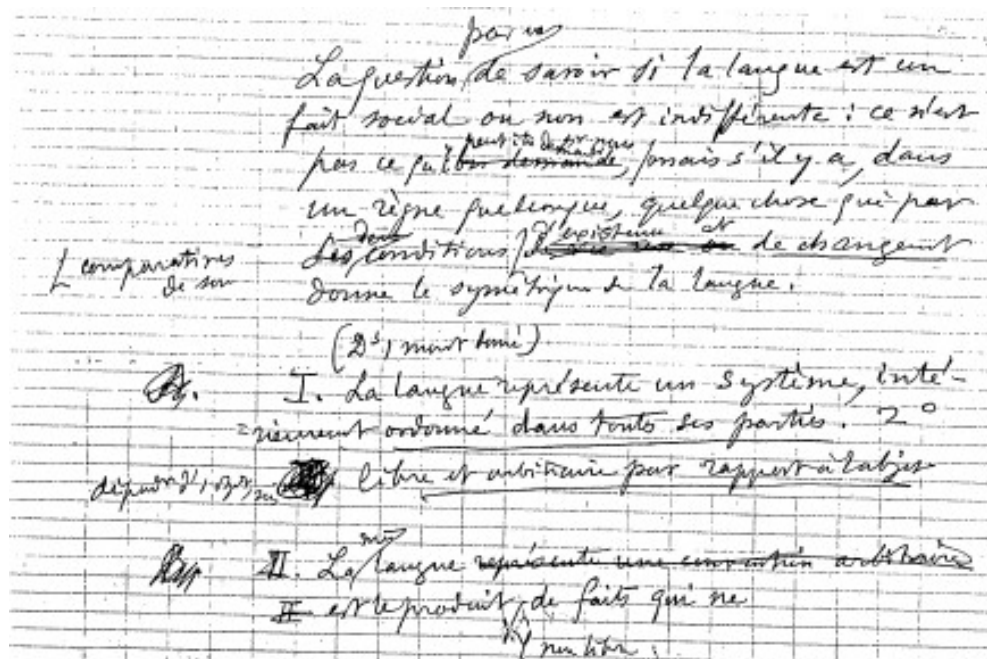 pour nous
La question de savoir si la langue est un
fait social ou non est indifférente : ce n'est
pas ce qu'il mais s'il y a, dans
un règne quelconque, quelque chose qui par
des conditions d'existence et de changement
comparatives
de son
donne le symétrique de la langue.
I. La langue représente un système, inté-
=rieurement ordonné dans toutes ses parties. 2°
libre et arbitraire par rapport à l'objet
II. La langue représente une convention arbitraire
II est le produit de faits qui ne
non libre.